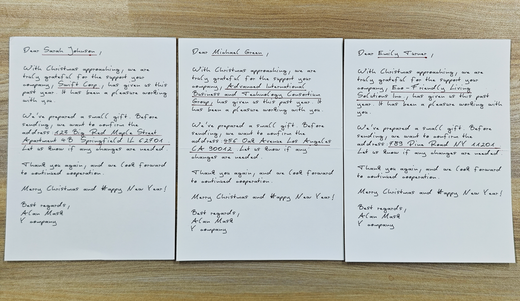 Dear Sarah Johnson,
With Christmas approaching, we are
truly grateful for the support your
company, Swift Corp, has given us this
past year. It has been a pleasure working
with you.
We've prepared a small gift. Before
sending, we want to confirm the
address: 123 Big Red Maple Street
Apartment #B Springfield IL 62701
Let us know if any changes are needed.
Thank you again, and we look forward
to continued cooperation.
Merry Christmas and Happy New Year!
Best regards,
Alan Mask
Y company
Dear Michael Green,
With Christmas approaching, we are
truly grateful for the support your
company, Advanced International
Business and Technology Consulting
Group, has given us this past year. It
has been a pleasure working with you.
We've prepared a small gift. Before
sending, we want to confirm the
address: 456 Oak Avenue Los Angeles
CA 90012 Let us know if any
changes are needed.
Thank you again, and we look forward
to continued cooperation.
Merry Christmas and Happy New Year!
Best regards,
Alan Mask
Y company
Dear Emily Turner,
With Christmas approaching, we are
truly grateful for the support your
company, Eco-Friendly Living
Solutions Inc, has given us this past
year. It has been a pleasure working with
you.
We've prepared a small gift. Before
sending, we want to confirm the
address: 789 Pine Road NY 11201
Let us know if any changes are needed
Thank you again, and we look forward
to continued cooperation.
Merry Christmas and Happy New Year!
Best regards,
Alan Mask
Y company